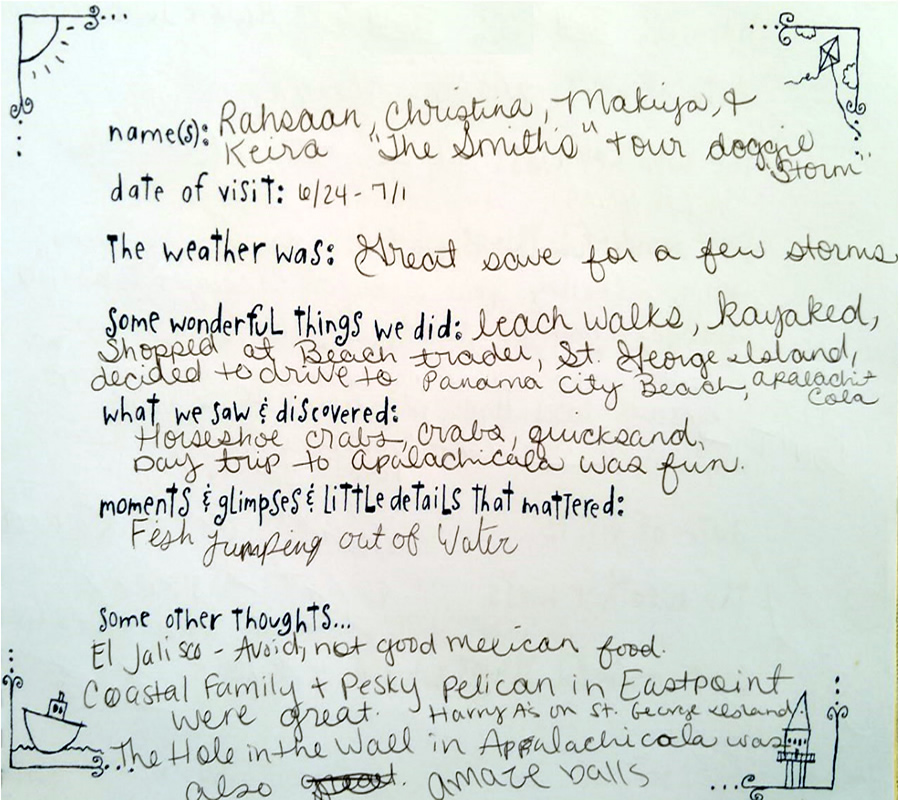 name(s): Rahsaan, Christina, Makiya, &
Keira "The Smiths" + our doggie
"Storm"
date of visit: 6/24 - 7/1
The weather was: Great save for a few storms
Some wonderful things we did: leach walks, kayaked,
Shopped at Beach trader, St. George Island,
decided to drive to Panama City Beach, apalachi
cola
what we saw & discovered:
Horseshoe crabs, crabs, quicksand,
Day trip to apalachicola was fun.
moments & glimpses & little details that mattered:
Fish Jumping out of Water
Some other thoughts...
El Jalisco - Avoid, not good mexican food.
Coastal Family + Pesky Pelican in Eastpoint
were great. Harry A's on St. George Island.
The Hole in the Wall in Appalachicola was
also great. amaze balls